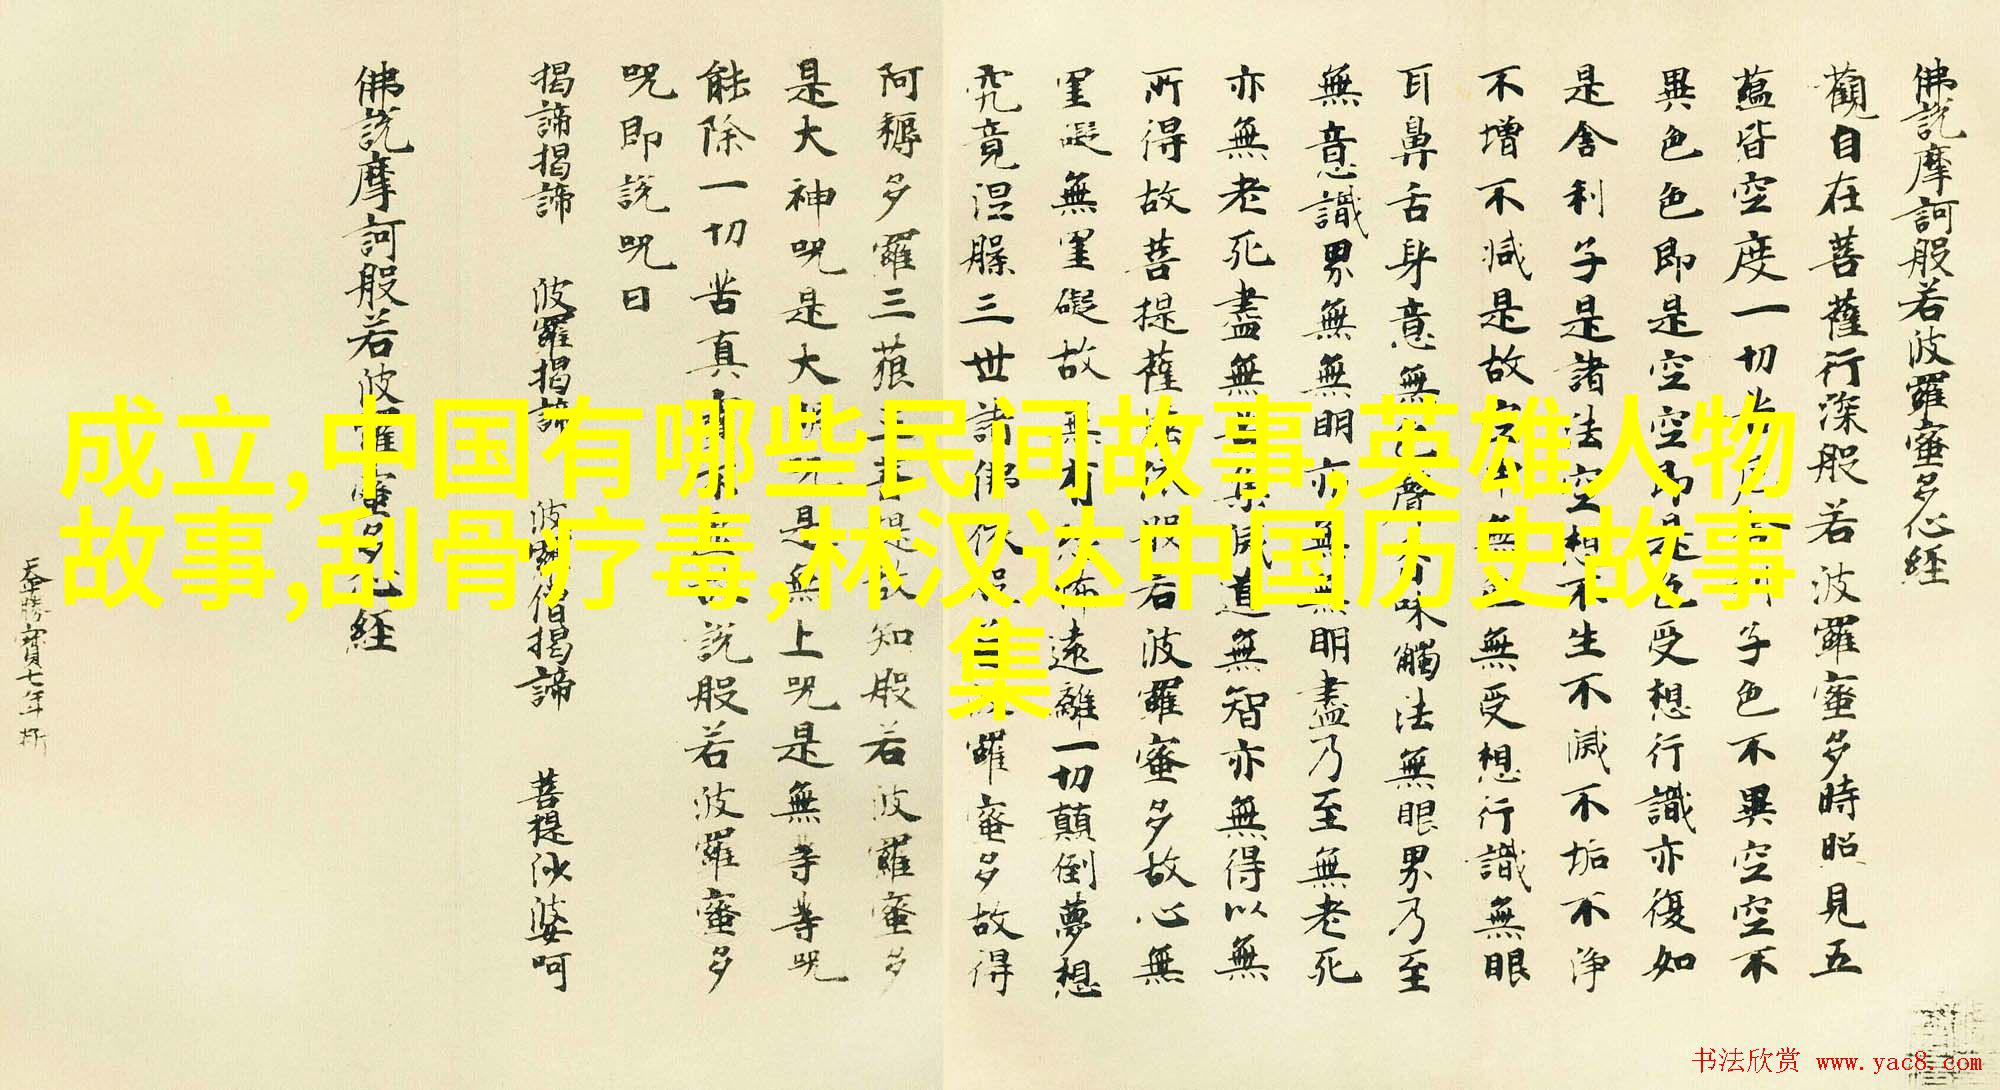 成立,中国有哪些民间故事,英雄人物
故事,刮骨疗毒,林汉达中国历史故事
集
佛說摩訶般若波羅蜜多心經
觀自在菩薩行深般若波羅蜜多時照見五
蘊皆空度一切苦厄舍利子色不異空空不
異色色即是空空即是色受想行識亦復如
是舍利子是諸法空想不生不滅不垢不淨
不增不減是故空中無色無受想行識無眼
耳鼻舌身意無色聲香味觸法無眼界乃至
無意識界無無明亦無無明盡乃至無老死
亦無老死盡無苦集滅道無智亦無得以無
所得故菩提薩埵依般若波羅蜜多故心無
罣礙無罣礙故無有恐怖遠離一切顛倒夢想
究竟涅槃三世諸佛依般若波羅蜜多故得
阿耨多羅三藐三菩提故知般若波羅蜜多
是大神呪是大明呪是無上呪是無等等呪
能除一切苦真實不虛故說般若波羅蜜多
呪即說呪曰
揭諦揭諦 波羅揭諦 波羅僧揭諦 菩提娑婆呵
佛說摩訶般若波羅蜜多心經
天平勝寶七年
书法欣赏 www.yac8.com